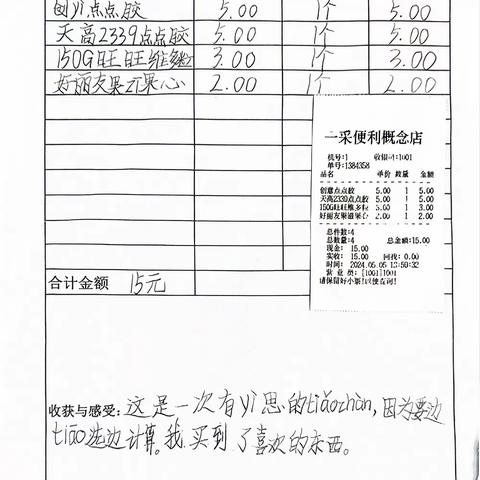 创yì点点胶 5.00 1个 5.00
天高2339点点胶 5.00 1个 5.00
150G旺旺维多粒 3.00 1个 3.00
好丽友果zī果心 2.00 1个 2.00
一采便利概念店
机号:1 收银员:1001
单号:1384358
品名 单价 数量 金额
创意点点胶 5.00 1 5.00
天高2339点点胶 5.00 1 5.00
150G旺旺维多粒 3.00 1 3.00
好丽友果滋果心 2.00 1 2.00
总件数:4
总数量:4 总金额:15.00
现金: 15.00
实收: 15.00 回找: 0.00
时间: 2024.05.05 13:59:32
营业员: [1001]1001
请保留好小票!以便查询!
合计金额 15元
收获与感受:这是一次有yì思的tiǎozhàn,因为要边
tiāo选边计算。我买到了喜欢的东西。